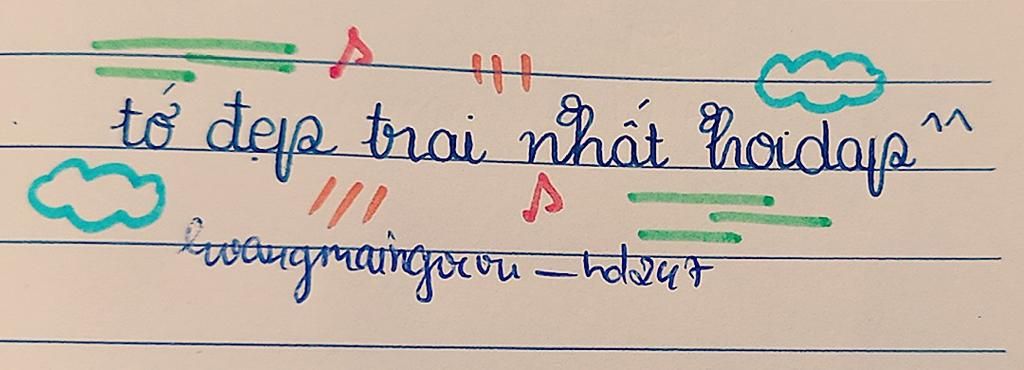 tớ đẹp trai nhất hoidap^^
hoangmaingocvu - hd247